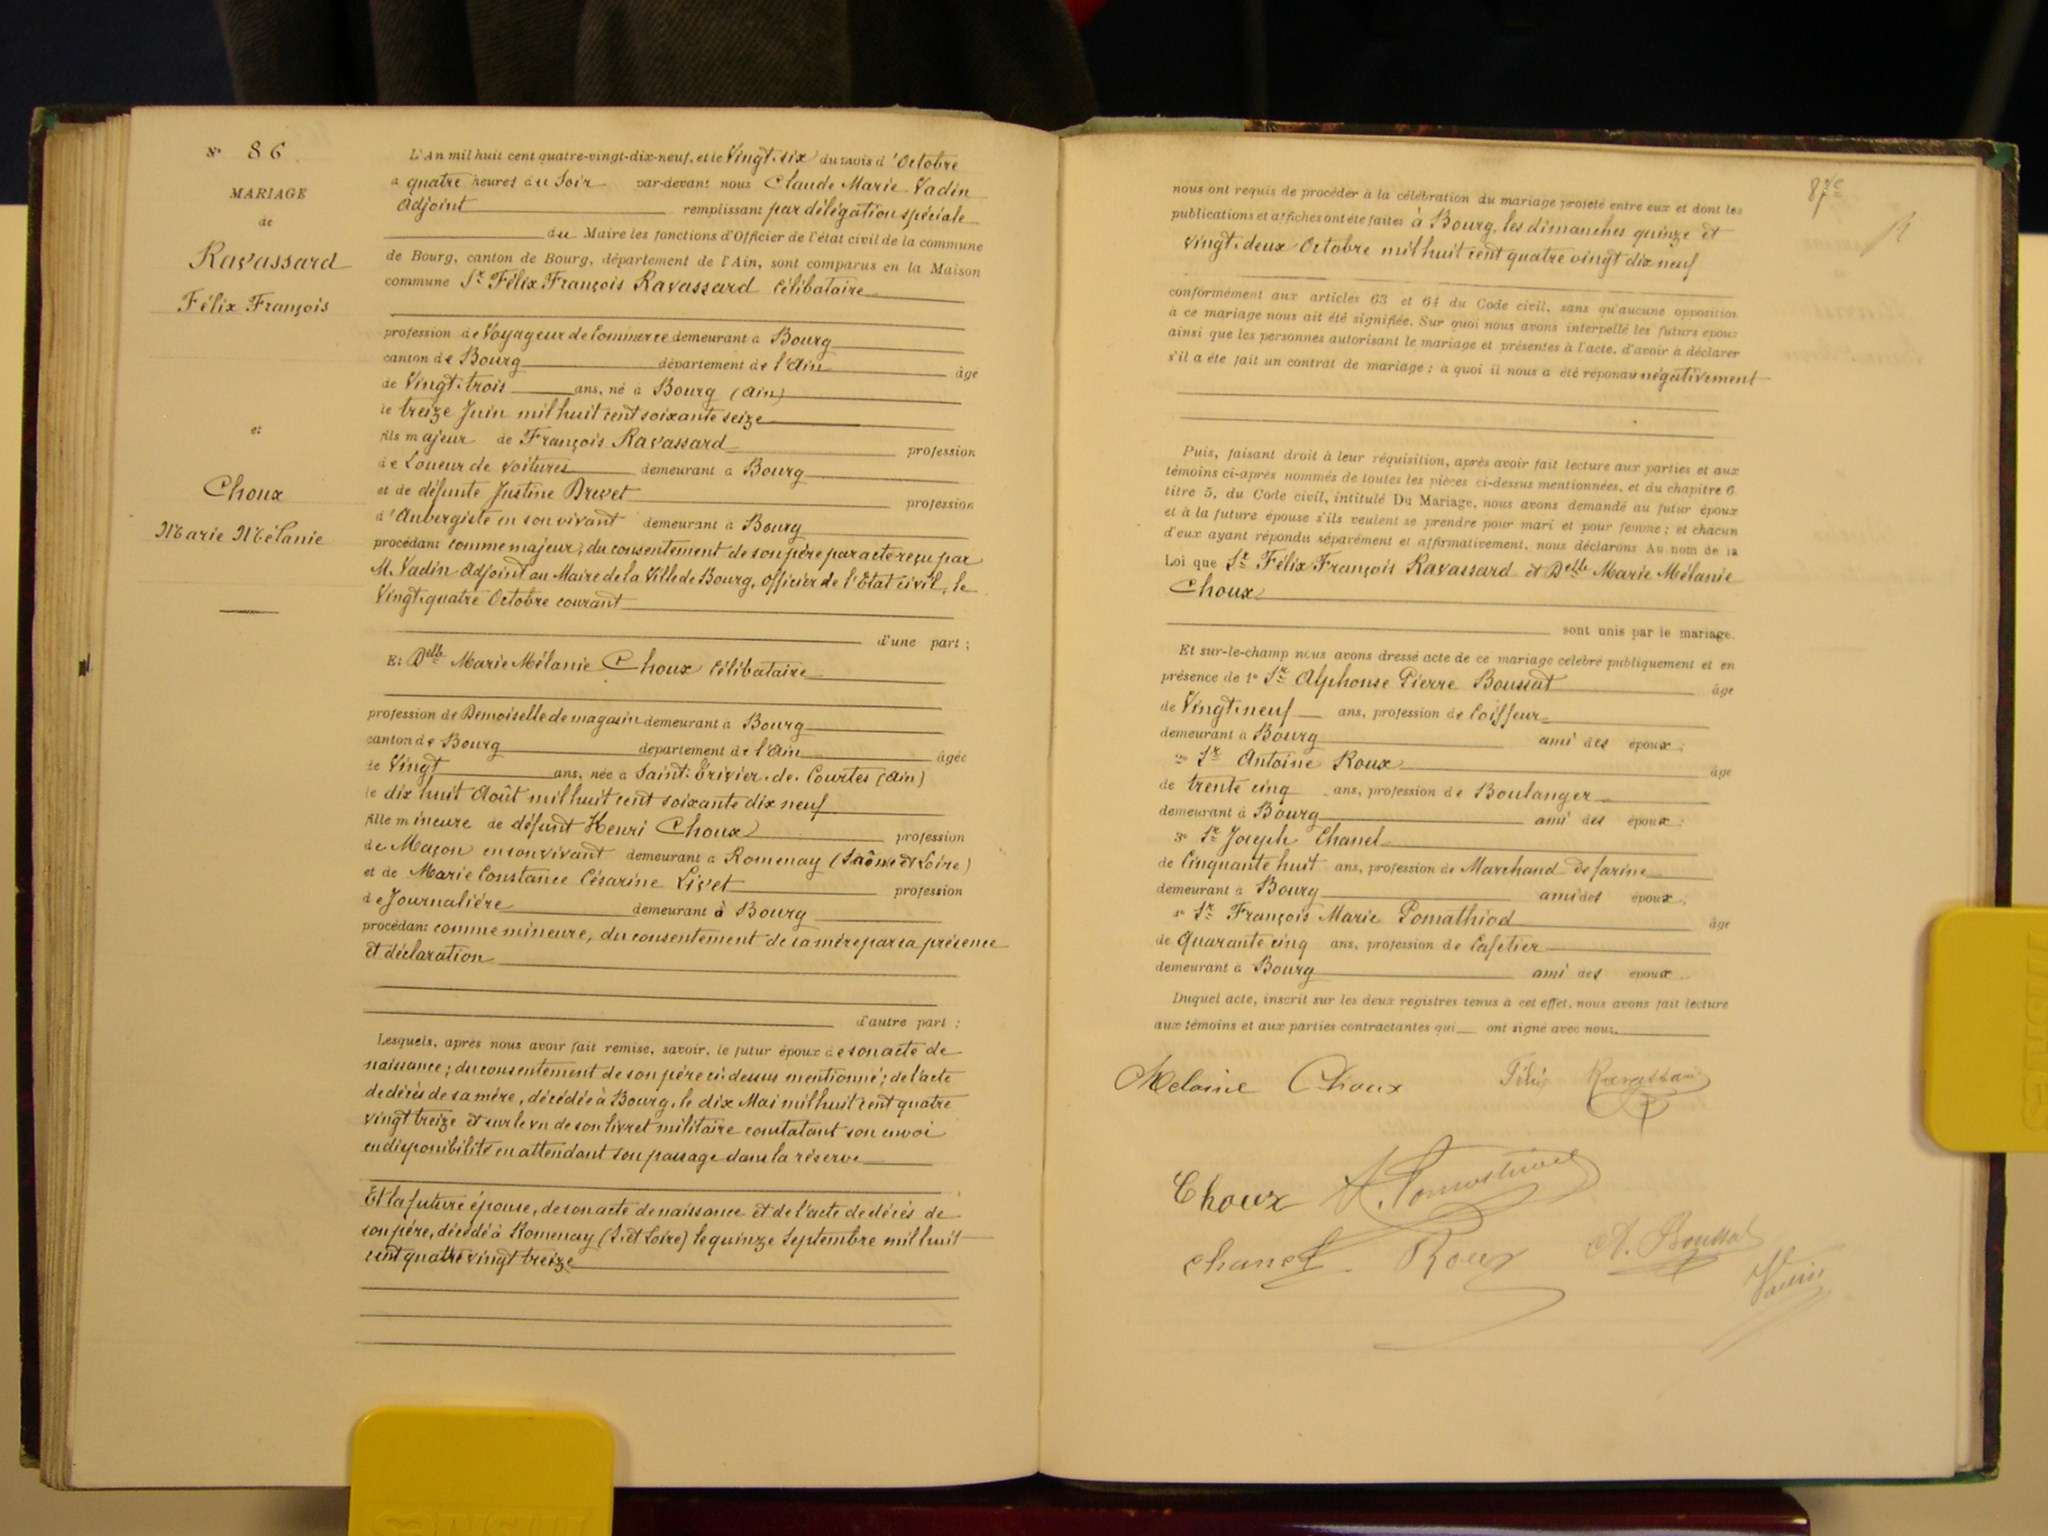 N° 86
MARIAGE
de
Ravassard
Félix François
et
Choux
Marie Mélanie
L'An mil huit cent quatre-vingt-dix-neuf, et le Vingt-six du mois d'Octobre
à quatre heures du Soir par-devant nous Claude Marie Vadin
Adjoint remplissant par délégation spéciale
du Maire les fonctions d'Officier de l'état civil de la commune
de Bourg, canton de Bourg, département de l'Ain, sont comparus en la Maison
commune Sr Félix François Ravassard célibataire
profession de Voyageur de Commerce demeurant à Bourg
canton de Bourg département de l'Ain âgé
de Vingt-trois ans, né à Bourg (Ain)
le treize Juin mil huit cent soixante seize
fils majeur de François Ravassard profession
de Loueur de voitures demeurant à Bourg
et de défunte Justine Brevet profession
d'Aubergiste en son vivant demeurant à Bourg
procédant comme majeur, du consentement de son père par acte reçu par
M. Vadin Adjoint au Maire de la Ville de Bourg, Officier de l'Etat civil, le
Vingt-quatre Octobre courant
d'une part ;
Et Delle Marie Mélanie Choux célibataire
profession de Demoiselle de magasin demeurant à Bourg
canton de Bourg département de l'Ain âgée
de Vingt ans, née à Saint-Trivier-de-Courtes (Ain)
le dix huit Août mil huit cent soixante dix neuf
fille mineure de défunt Henri Choux profession
de Maçon en son vivant demeurant à Romenay (Saône et Loire)
et de Marie Constance Césarine Livet profession
de Journalière demeurant à Bourg
procédant comme mineure, du consentement de sa mère par sa présence
et déclaration
d'autre part :
Lesquels, après nous avoir fait remise, savoir, le futur époux de son acte de
naissance ; du consentement de son père ci-dessus mentionné ; de l'acte
de décès de sa mère, décédée à Bourg, le dix Mai mil huit cent quatre
vingt treize et sur le vu de son livret militaire constatant son envoi
en disponibilité en attendant son passage dans la réserve
Et la future épouse, de son acte de naissance et de l'acte de décès de
son père, décédé à Romenay (S. et Loire) le quinze Septembre mil huit
cent quatre vingt treize
87e
nous ont requis de procéder à la célébration du mariage projeté entre eux et dont les
publications et affiches ont été faites à Bourg, les dimanches quinze et
vingt-deux Octobre mil huit cent quatre vingt dix neuf
conformément aux articles 63 et 64 du Code civil, sans qu'aucune opposition
à ce mariage nous ait été signifiée. Sur quoi nous avons interpellé les futurs époux
ainsi que les personnes autorisant le mariage et présentes à l'acte, d'avoir à déclarer
s'il a été fait un contrat de mariage ; à quoi il nous a été répondu négativement
Puis, faisant droit à leur réquisition, après avoir fait lecture aux parties et aux
témoins ci-après nommés de toutes les pièces ci-dessus mentionnées, et du chapitre 6
titre 5, du Code civil, intitulé Du Mariage, nous avons demandé au futur époux
et à la future épouse s'ils veulent se prendre pour mari et pour femme ; et chacun
d'eux ayant répondu séparément et affirmativement, nous déclarons Au nom de la
Loi que Sr Félix François Ravassard et Delle Marie Mélanie
Choux
sont unis par le mariage.
Et sur-le-champ nous avons dressé acte de ce mariage célébré publiquement et en
présence de 1° Sr Alphonse Pierre Boussat âgé
de Vingt-neuf ans, profession de Coiffeur
demeurant à Bourg ami des époux ;
2° Sr Antoine Roux âgé
de trente cinq ans, profession de Boulanger
demeurant à Bourg ami des époux ;
3° Sr Joseph Chanel
de Cinquante huit ans, profession de Marchand de farine
demeurant à Bourg ami des époux ;
Sr François Marie Pomathiod âgé
de Quarante cinq ans, profession de Cafetier
demeurant à Bourg ami des époux
Duquel acte, inscrit sur les deux registres tenus à cet effet, nous avons fait lecture
aux témoins et aux parties contractantes qui ont signé avec nous.
Melanie Choux Félix Ravassard
Choux Pomathiod
Chanel Roux A. Boussat
Vadin